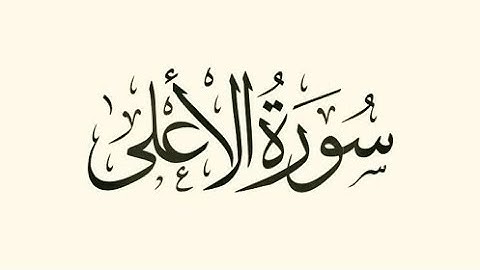 سُورَةُ الأعلى